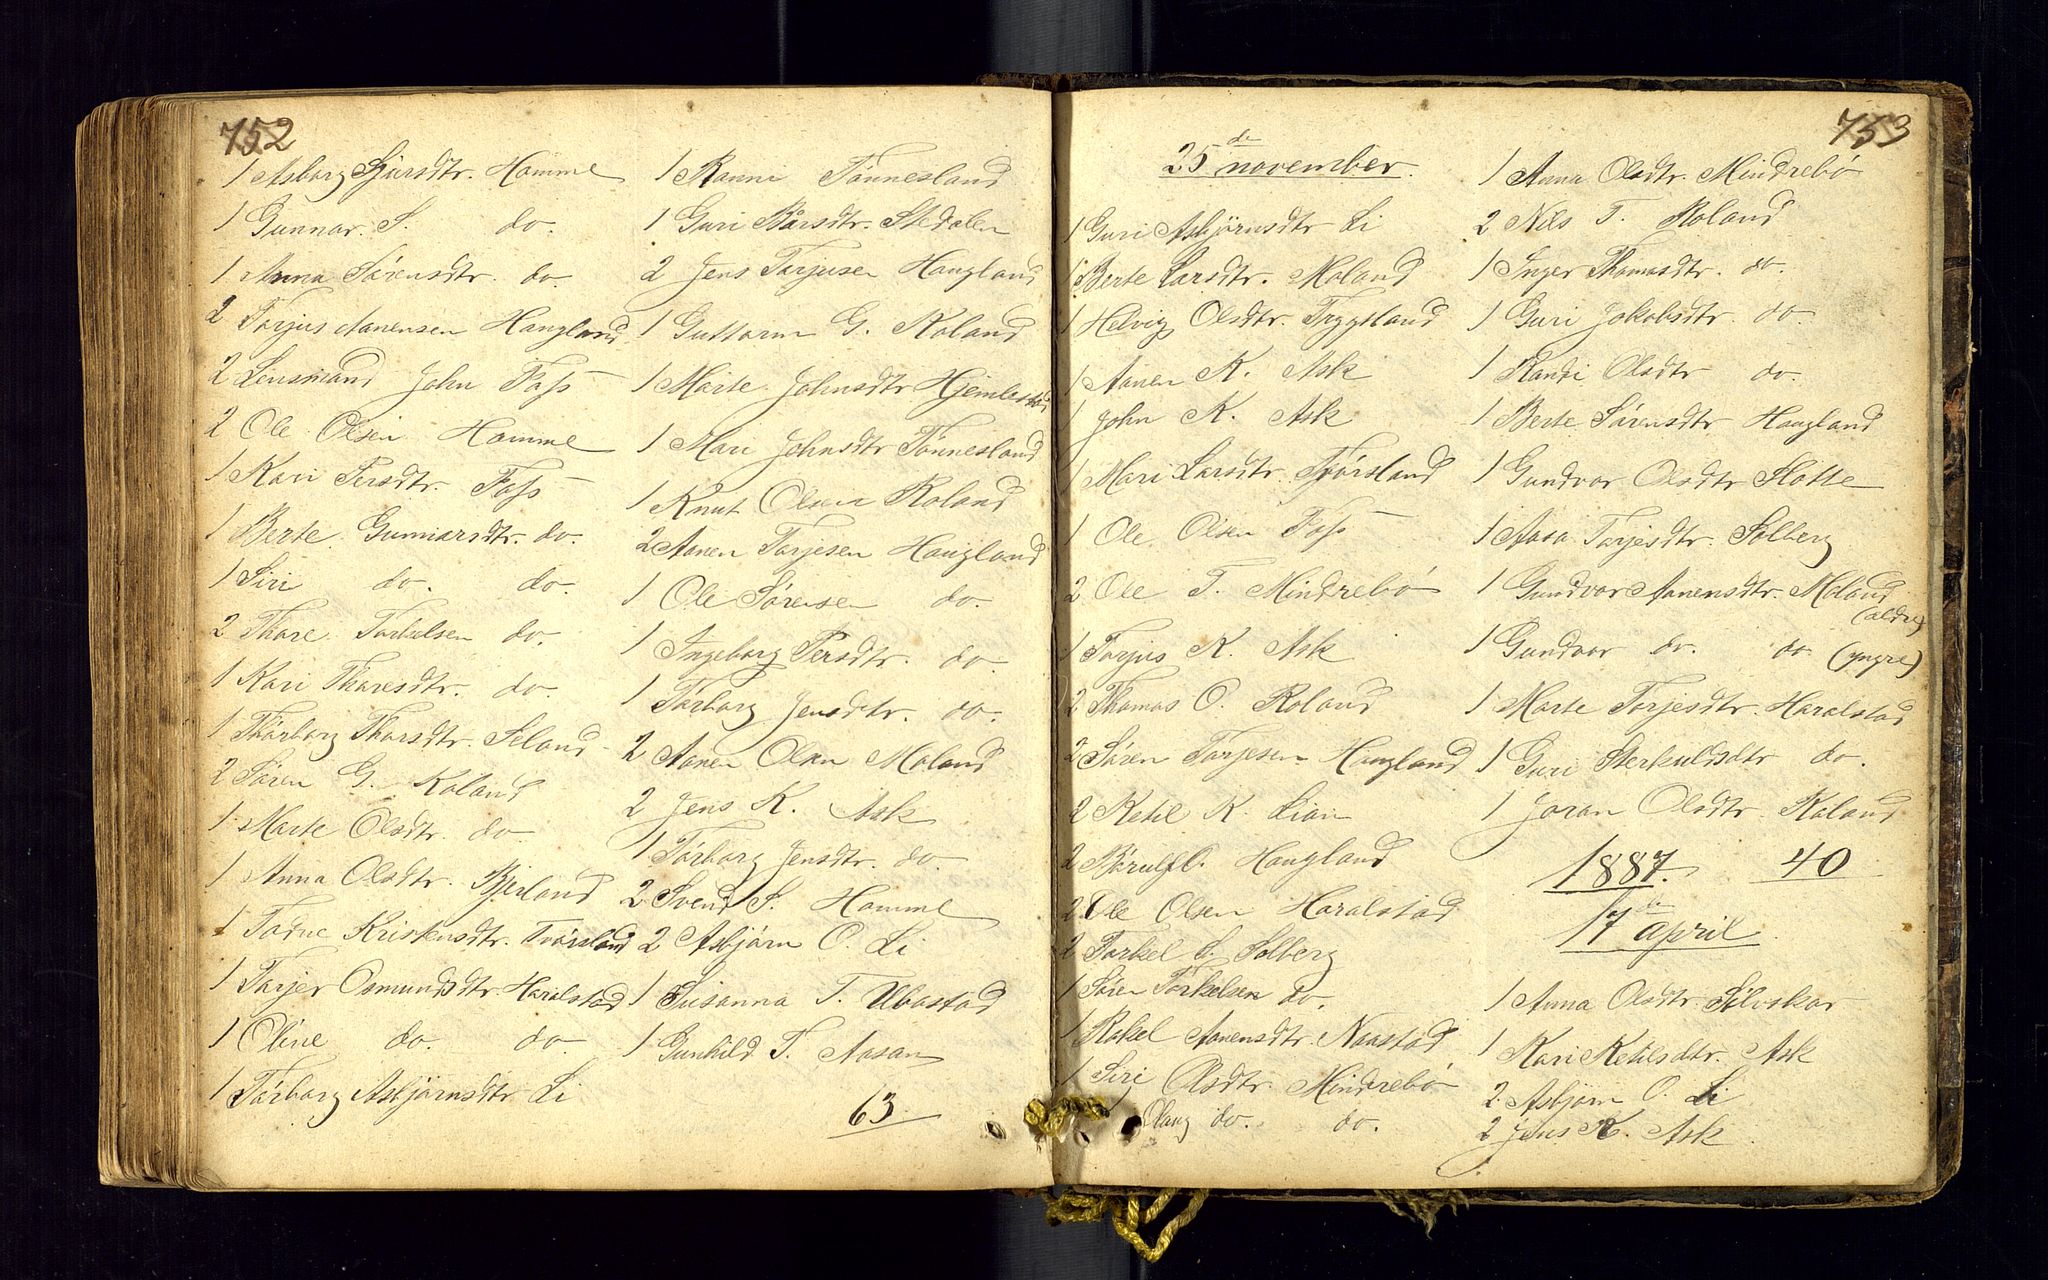 752
1 Asborg Sjursdtr. Homme
1 Gunnar. S. do.
1 Anna Sørensdtr. do.
2 Torjus Aanensen Haugland
2 Lensmand John Foss
2 Ole Olsen Homme
1 Kari Persdtr. Foss
1 Berte Gunnarsdtr. do.
1 Siri do. do.
2 Thore Torkelsen do.
1 Kari Thoresdtr. do.
1 Thorborg Thorsdtr. Seland
2 Søren G. Roland
1 Marte Olsdtr. do
1 Anna Olsdtr. Bjerland
1 Torne Kristensdtr. Tvørsland
1 Torjer Osmundsdtr. Haralstad
1 Oline do. do.
1 Torborg Asbjørnsdtr Li
1 Ranni Tønnesland
1 Guri Bårsdtr. Stedalen
2 Jens Torjusen Haugland
1 Guttorm G. Roland
1 Marte Johnsdtr Hjemlestad
1 Mari Johnsdtr Tønnesland
1 Knut Olsen Roland
2 Aanen Torjesen Haugland
1 Ole Sørensen do.
1 Ingeborg Persdtr. do
1 Torborg Jensdtr. do.
2 Aanen Olsen Moland
2 Jens K. Ask
1 Torborg Jensdtr. do.
2 Svend S. Homme
2 Asbjørn O. Li
1 Susanna T. Ubostad
1 Gunhild T. Aasan
63
753
25de november.
1 Guri Asbjørnsdtr Li
1 Berte Larsdtr. Moland
1 Helvig Olsdtr. Tryglland
1 Aanen K. Ask
1 John K. Ask
1 Mari Larsdtr. Tvørsland
1 Ole Olsen Foss
2 Ole T. Mindrebø
1 Torjus K. Ask
2 Thomas O. Roland
2 Søren Torjesen Haugland
2 Ketil K. Lian
2 Børulf O. Haugland
2 Ole Olsen Haralstad
2 Torkel S. Solberg
1 Søren Torkelsen do.
1 Rakel Aanensdtr. Naastad
1 Siri Olsdtr. Mindrebø
1 Olaug do. do.
1 Anna Olsdtr. Mindrebø
2 Nils T. Roland
1 Inger Thomasdtr. do.
1 Guri Jokobsdtr. do.
1 Randi Olsdtr do.
1 Berte Sørensdtr. Haugland
1 Gundvor Olsdtr Slotte
1 Aasa Torjesdtr. Solberg
1 Gundvor Aanensdtr. Moland (ældre)
1 Gundvor do. do. (yngre)
1 Marte Torjesdtr. Haralstad
1 Guri Sterkuldsdtr do.
1 Joran Olsdtr. Roland
1887. 40
17de april
1 Anna Olsdtr. Sølvskar
1 Kari Ketilsdtr. Ask
2 Asbjørn O. Li
2 Jens K. Ask